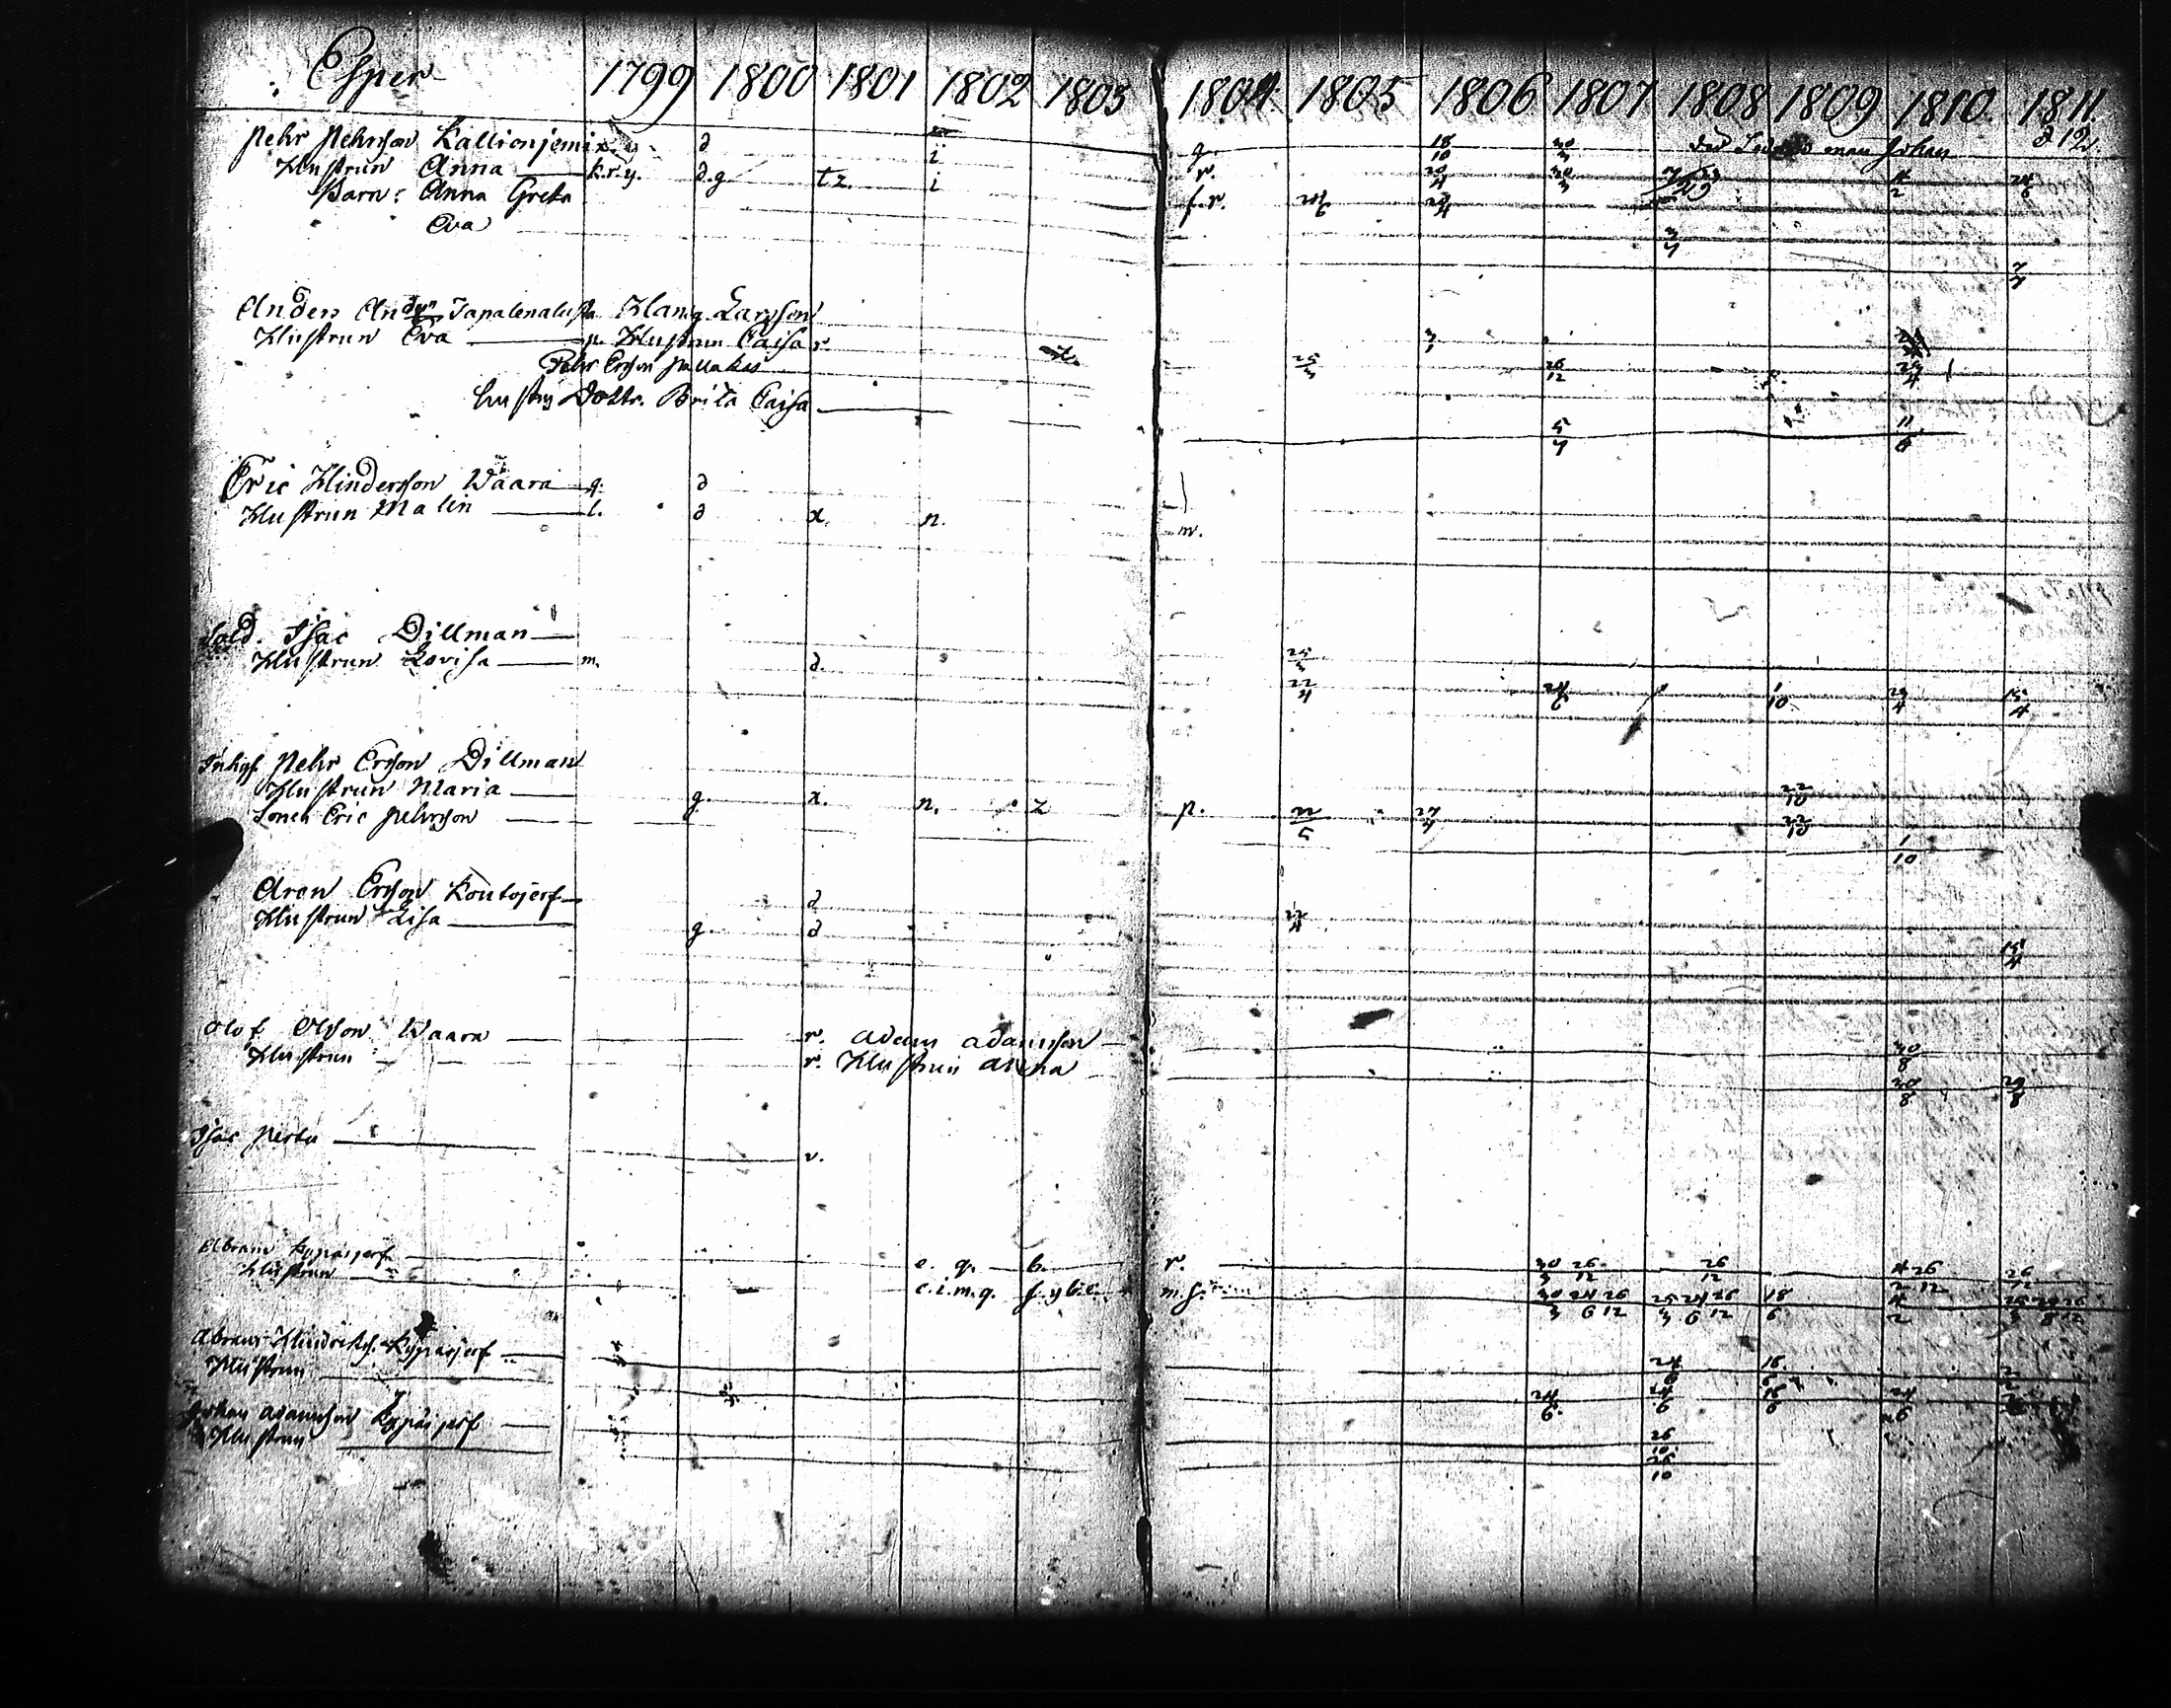 Esper 1799 1800 1801 1802 1803 1804 1805 1806 1807 1808 1809 1810 1811
Pehr Pehrsson Kallionjemi d g. 18/10 30/3 man Johan d 12
Hustrun Anna k.r.y. d.g t z. i r. 20/4 30/3 4/2 24/6
Barn: Anna Greta f.r. 24/6 20/4
Eva 3/7
7/7
Anders Hans Larsson
Hustrun Eva p. Hustrun Caisa r. 3/1
Pehr Ersson Pallakas 25/3 26/12 23/4
hustru Dottr. Brita Caisa
5/7 11/6
Eric Hindersson Waara q. d
Hustrun Malin l. d x. n. m.
Sold. Isac Dillman 25/3
Hustrun Lovisa m. d. 22/4 24/6 1/10 23/4 15/4
Inhys. Pehr Ersson Dillman
Hustrun Maria g. x. n. z p. 22/5 27/7 22/10
Sonen Eric Pehrsson 22/10
1/10
Aron Ersson Koutojerf d
Hustrun Lisa g. d 22/4
15/4
Olof Olsson Waara r. Adam Adamsson 30/8
Hustrun r. Hustrun Anna 30/8 29/8
Isac Pertu v.
Abram Kypäsjerf e. q. b. r. 30/3 26/12 26/12 4/2 26/12 26/12
Hustrun e.i.m.q. f.y.b.c. m.f. 30/3 24/6 26/12 25/3 24/6 26/12 18/6 4/2
Abram Hindricks. Kypäsjerf 24/6 18/6
Hustrun 24/6 24/6 18/6 24/6
Johan Adamsson Kypäsjerf 26/10
Hustrun 26/10